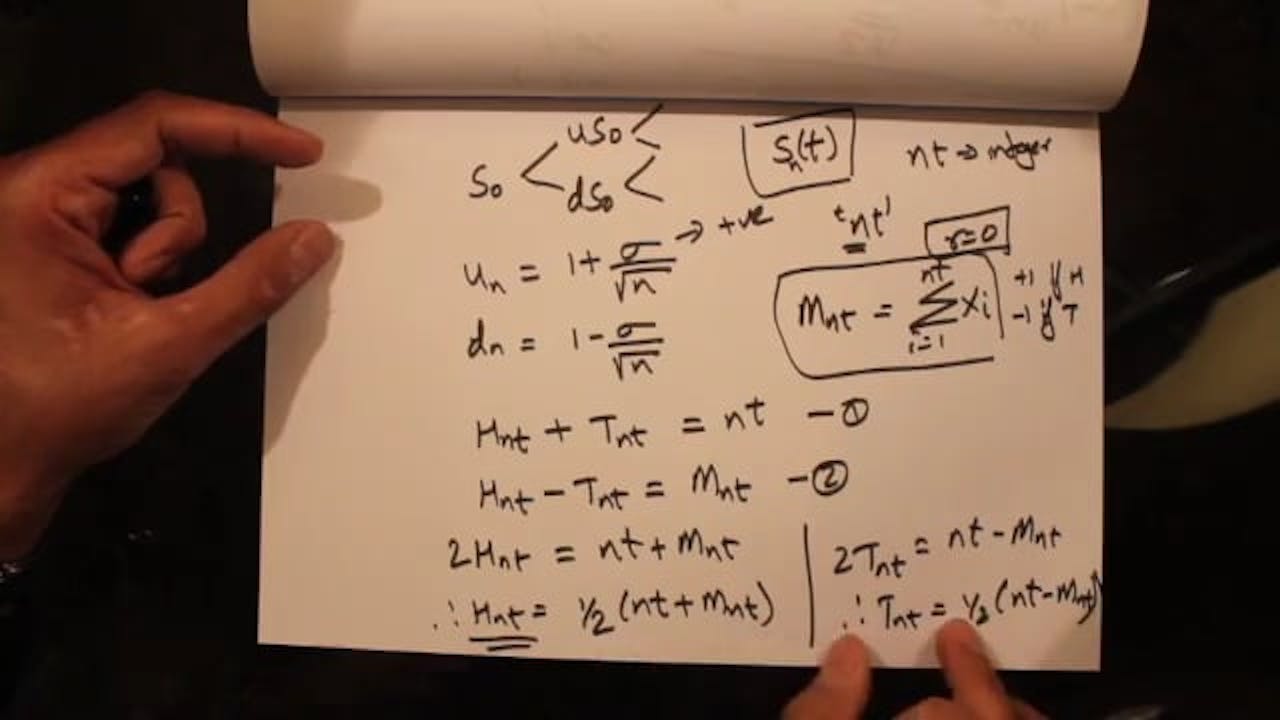 uS₀
S₀
dS₀
Sₙ(t)
nt ⇒ integer
uₙ = 1 + σ/√n → +ve
'nt'
r=0
dₙ = 1 - σ/√n
Mₙₜ = Σ Xᵢ
nt
i=1
+1 if H
-1 if T
Hₙₜ + Tₙₜ = nt - ①
Hₙₜ - Tₙₜ = Mₙₜ - ②
2Hₙₜ = nt + Mₙₜ
∴ Hₙₜ = 1/2 (nt + Mₙₜ)
2Tₙₜ = nt - Mₙₜ
∴ Tₙₜ = 1/2 (nt - Mₙₜ)